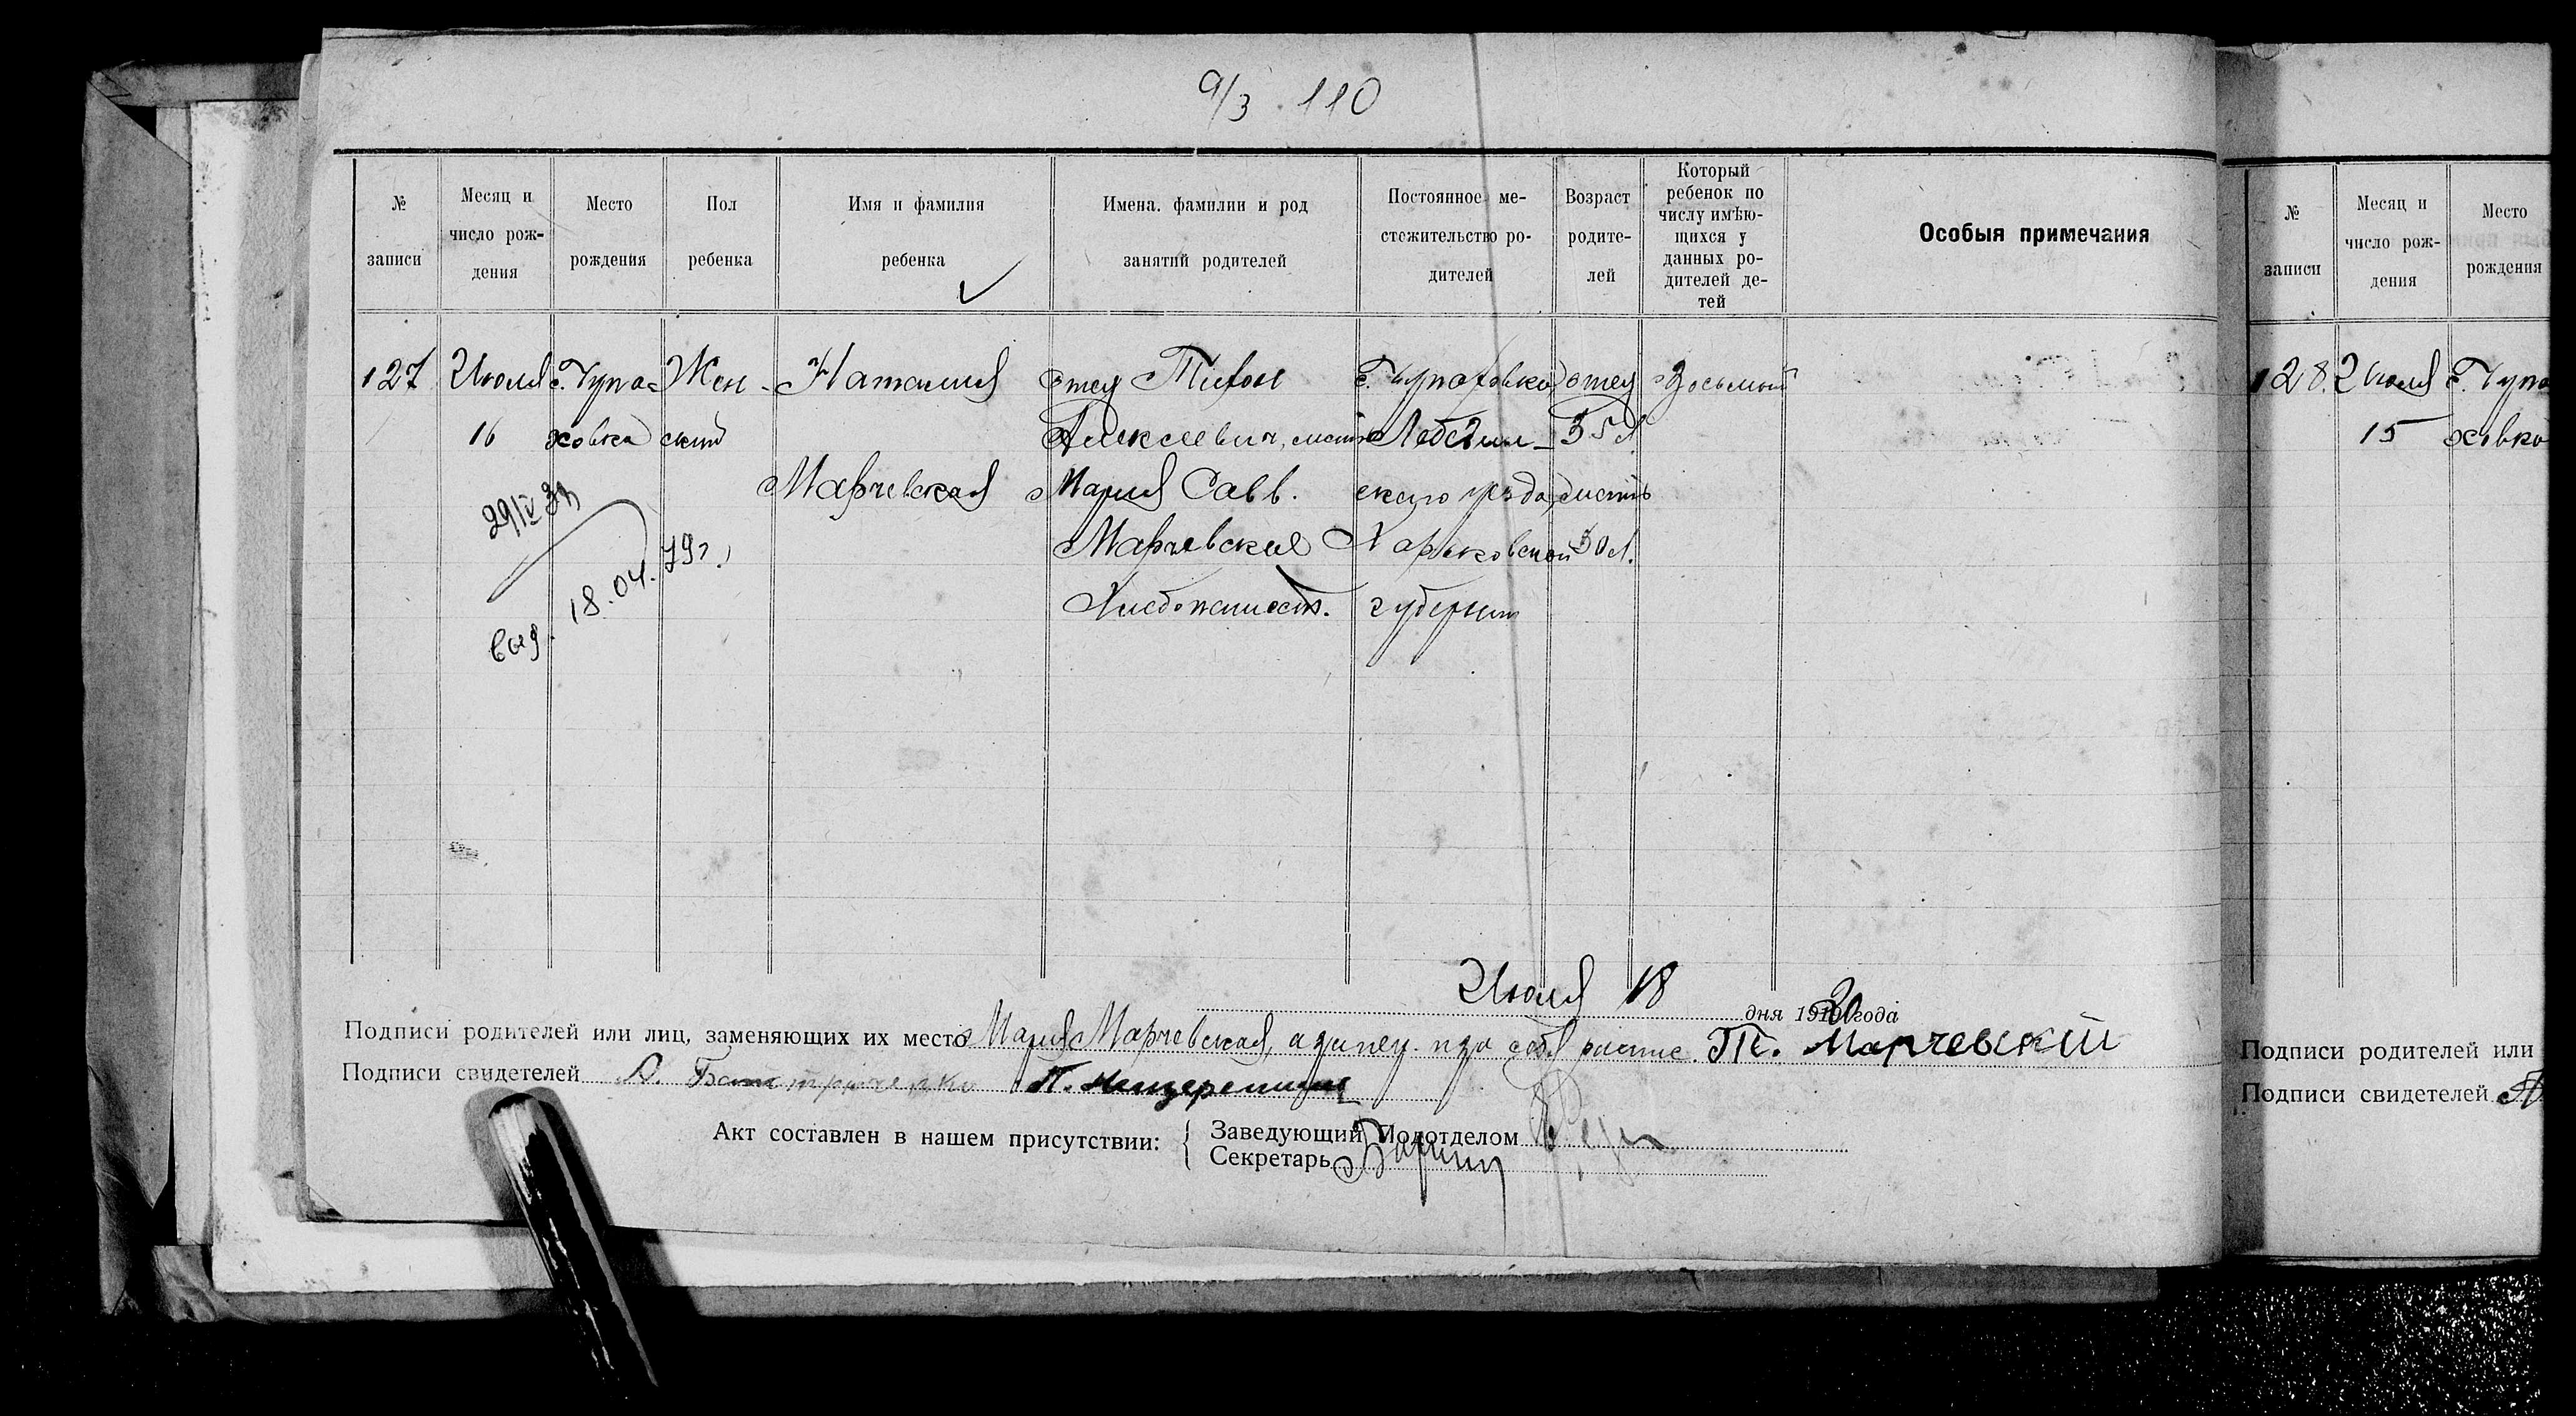 а/з. 110
№ записи
Месяц и число рождения
Место рождения
Пол ребенка
Имя и фамилия ребенка
Имена. фамилии и род занятий родителей
Постоянное местожительство родителей
Возраст родителей
Который ребенок по числу имѣющихся у данных родителей детей
Особыя примечания
№ записи
Месяц и число рождения
Место рождения
127 Июля с. Чупа- Жен- Наталия отец Тихон с. Чупаховка, отец восьмый
16 ховка ский Алексеевич, мать Лебедин- 35 л.
Марчевская Мария Савв. ского уезда, мать
Марчевские Харьковской 30 л.
Хлебопашест. губернии
29/IV 
18.04.79г.
выд.
128. Июля с. Чупа
15 ховка
Июля 18 дня 1920 года
Подписи родителей или лиц, заменяющих их место Мария Марчевская, а за нея и за себя распис. Т. Марчевский
Подписи свидетелей
Акт составлен в нашем присутствии:
Заведующий Подотделом
Секретарь
Подписи родителей или
Подписи свидетелей